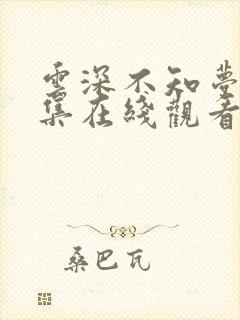 雲深不知夢
集在綫觀看
桑巴瓦